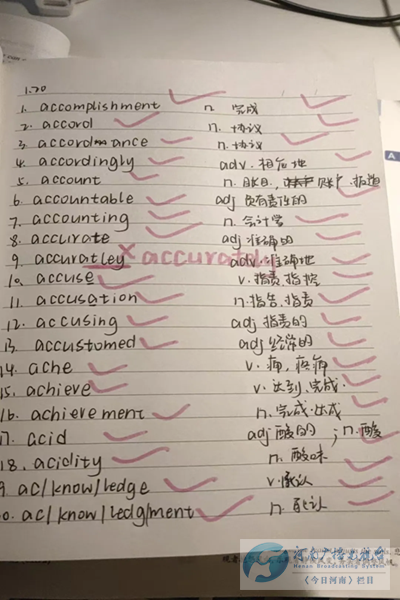 1.20
1. accomplishment n. 完成
2. accord n. 协议
3. accordance n. 协议
4. accordingly adv. 相应地
5. account n. 账目, 账户, 报道
6. accountable adj 负有责任的
7. accounting n. 会计学
8. accurate adj 准确的
9. accuratley × accurately adv. 准确地
10. accuse v. 指责, 指控
11. accusation n. 指告, 指责
12. accusing adj 指责的
13. accustomed adj 经常的
14. ache v. 痛, 疼痛
15. achieve v. 达到, 完成.
16. achievement n. 完成. 达成
17. acid adj 酸的 ; n. 酸
18. acidity n. 酸味
9. ac/know/ledge v. 承认
0. ac/know/ledg/ment n. 承认
A
河南广播电视台
Henan Broadcasting System
《今日河南》栏目